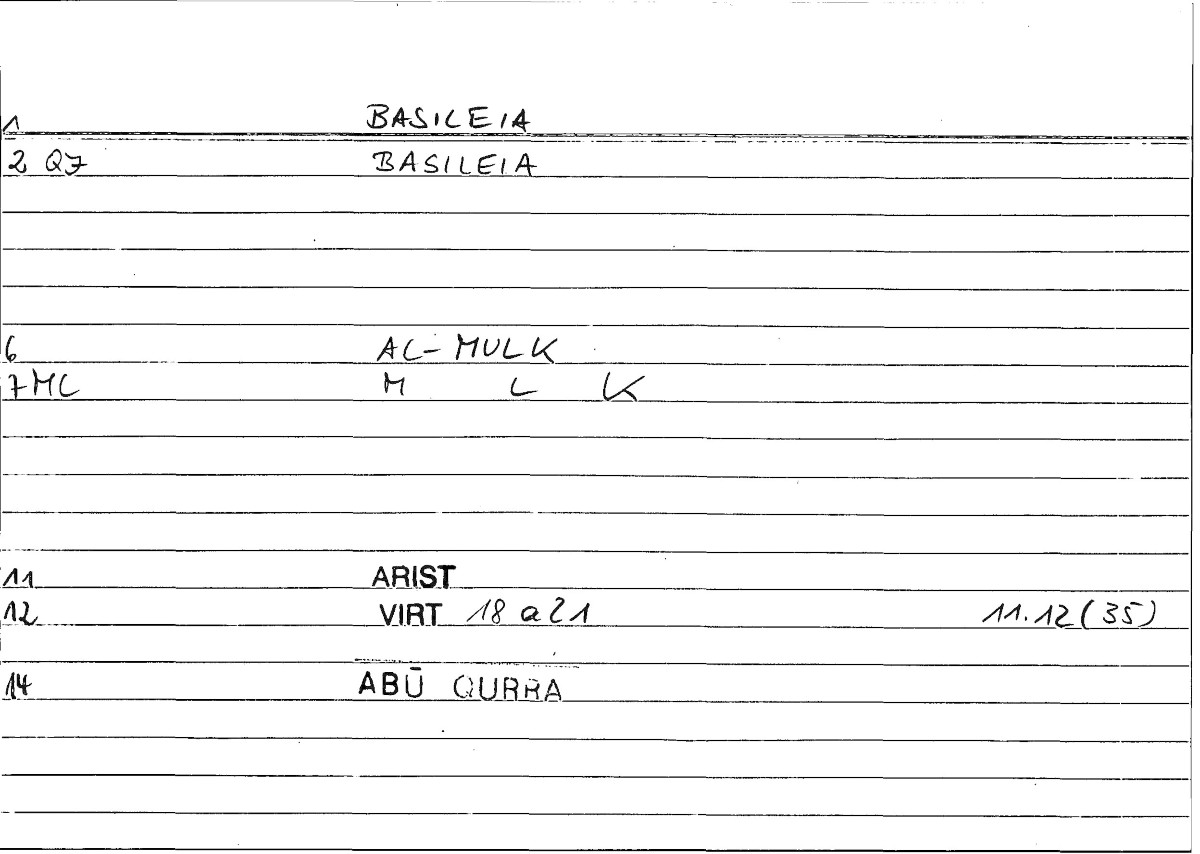 1 BASILEIA
2 Q7 BASILEIA
6 AL-MULK
7 ML M L K
11 ARIST
12 VIRT 18 a 21 11.12 (35)
14 ABŪ QURRA